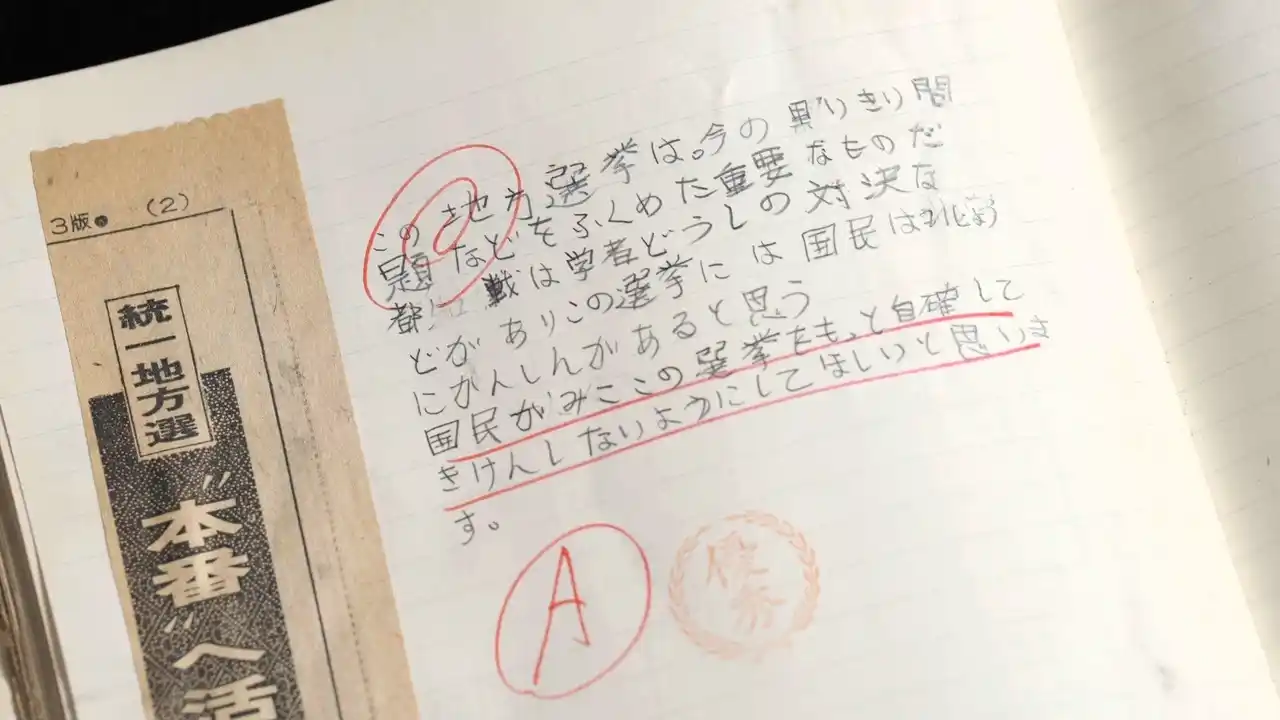 3版
(2)
統一地方選
"本番"へ活
この地方選挙は。今の思いきり問
題などをふくめた重要なものだ
都知戦は学者どうしの対決な
どがありこの選挙には国民はひじょう
にかんしんがあると思う
国民がみこの選挙をもっと自確して
きけんしないようにしてほしいと思いま
す。
A
優秀